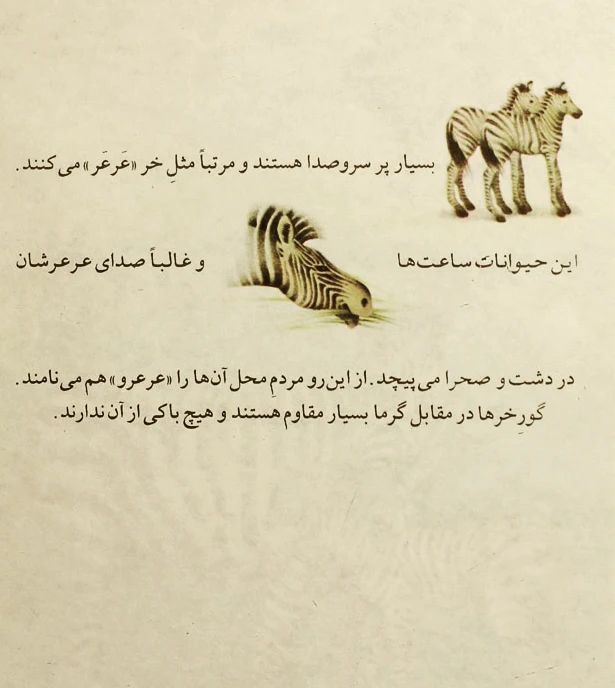 بسیار پر سروصدا هستند و مرتباً مثلِ خر «عَرعَر» می‌کنند.
این حیوانات ساعت‌ها و غالباً صدای عرعرشان
در دشت و صحرا می‌پیچد. از این‌رو مردمِ محل آن‌ها را «عرعرو» هم می‌نامند.
گورِخرها در مقابل گرما بسیار مقاوم هستند و هیچ باکی از آن ندارند.